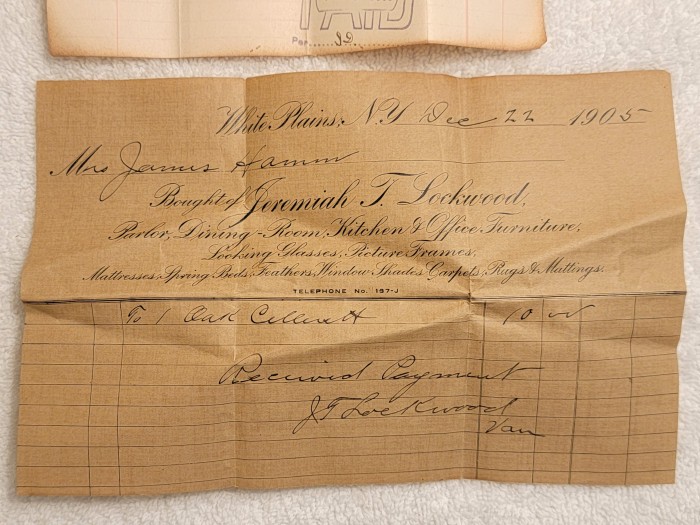 PAID
Per...... J.D.
White Plains, N.Y. Dec 22 1905
Mrs James Hamm
Bought of Jeremiah T. Lockwood,
Parlor, Dining-Room, Kitchen & Office Furniture,
Looking Glasses, Picture Frames,
Mattresses, Spring Beds, Feathers, Window Shades, Carpets, Rugs & Mattings.
TELEPHONE No. 157-J
To 1 Oak Cellerett 10 00
Received Payment
J T Lockwood